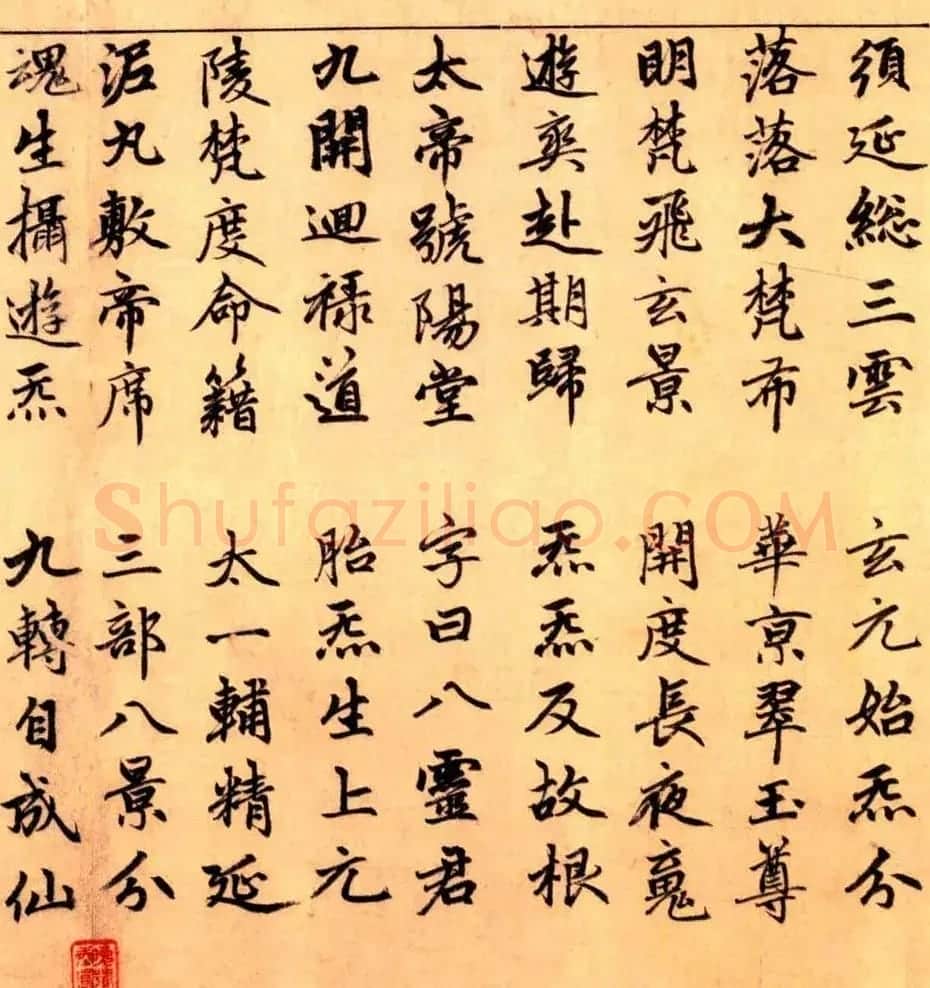 須延総三雲 玄元始炁分
落落大梵布 華亰翠玉尊
明梵飛玄景 開度長夜䰟
遊爽赴期歸 炁炁反故根
太帝號陽堂 字曰八靈君
九開迴祿道 胎炁生上元
陵梵度命籍 太一輔精延
泥丸敷帝席 三部八景分
魂生攝遊炁 九轉自成仙
Shufaziliao.COM